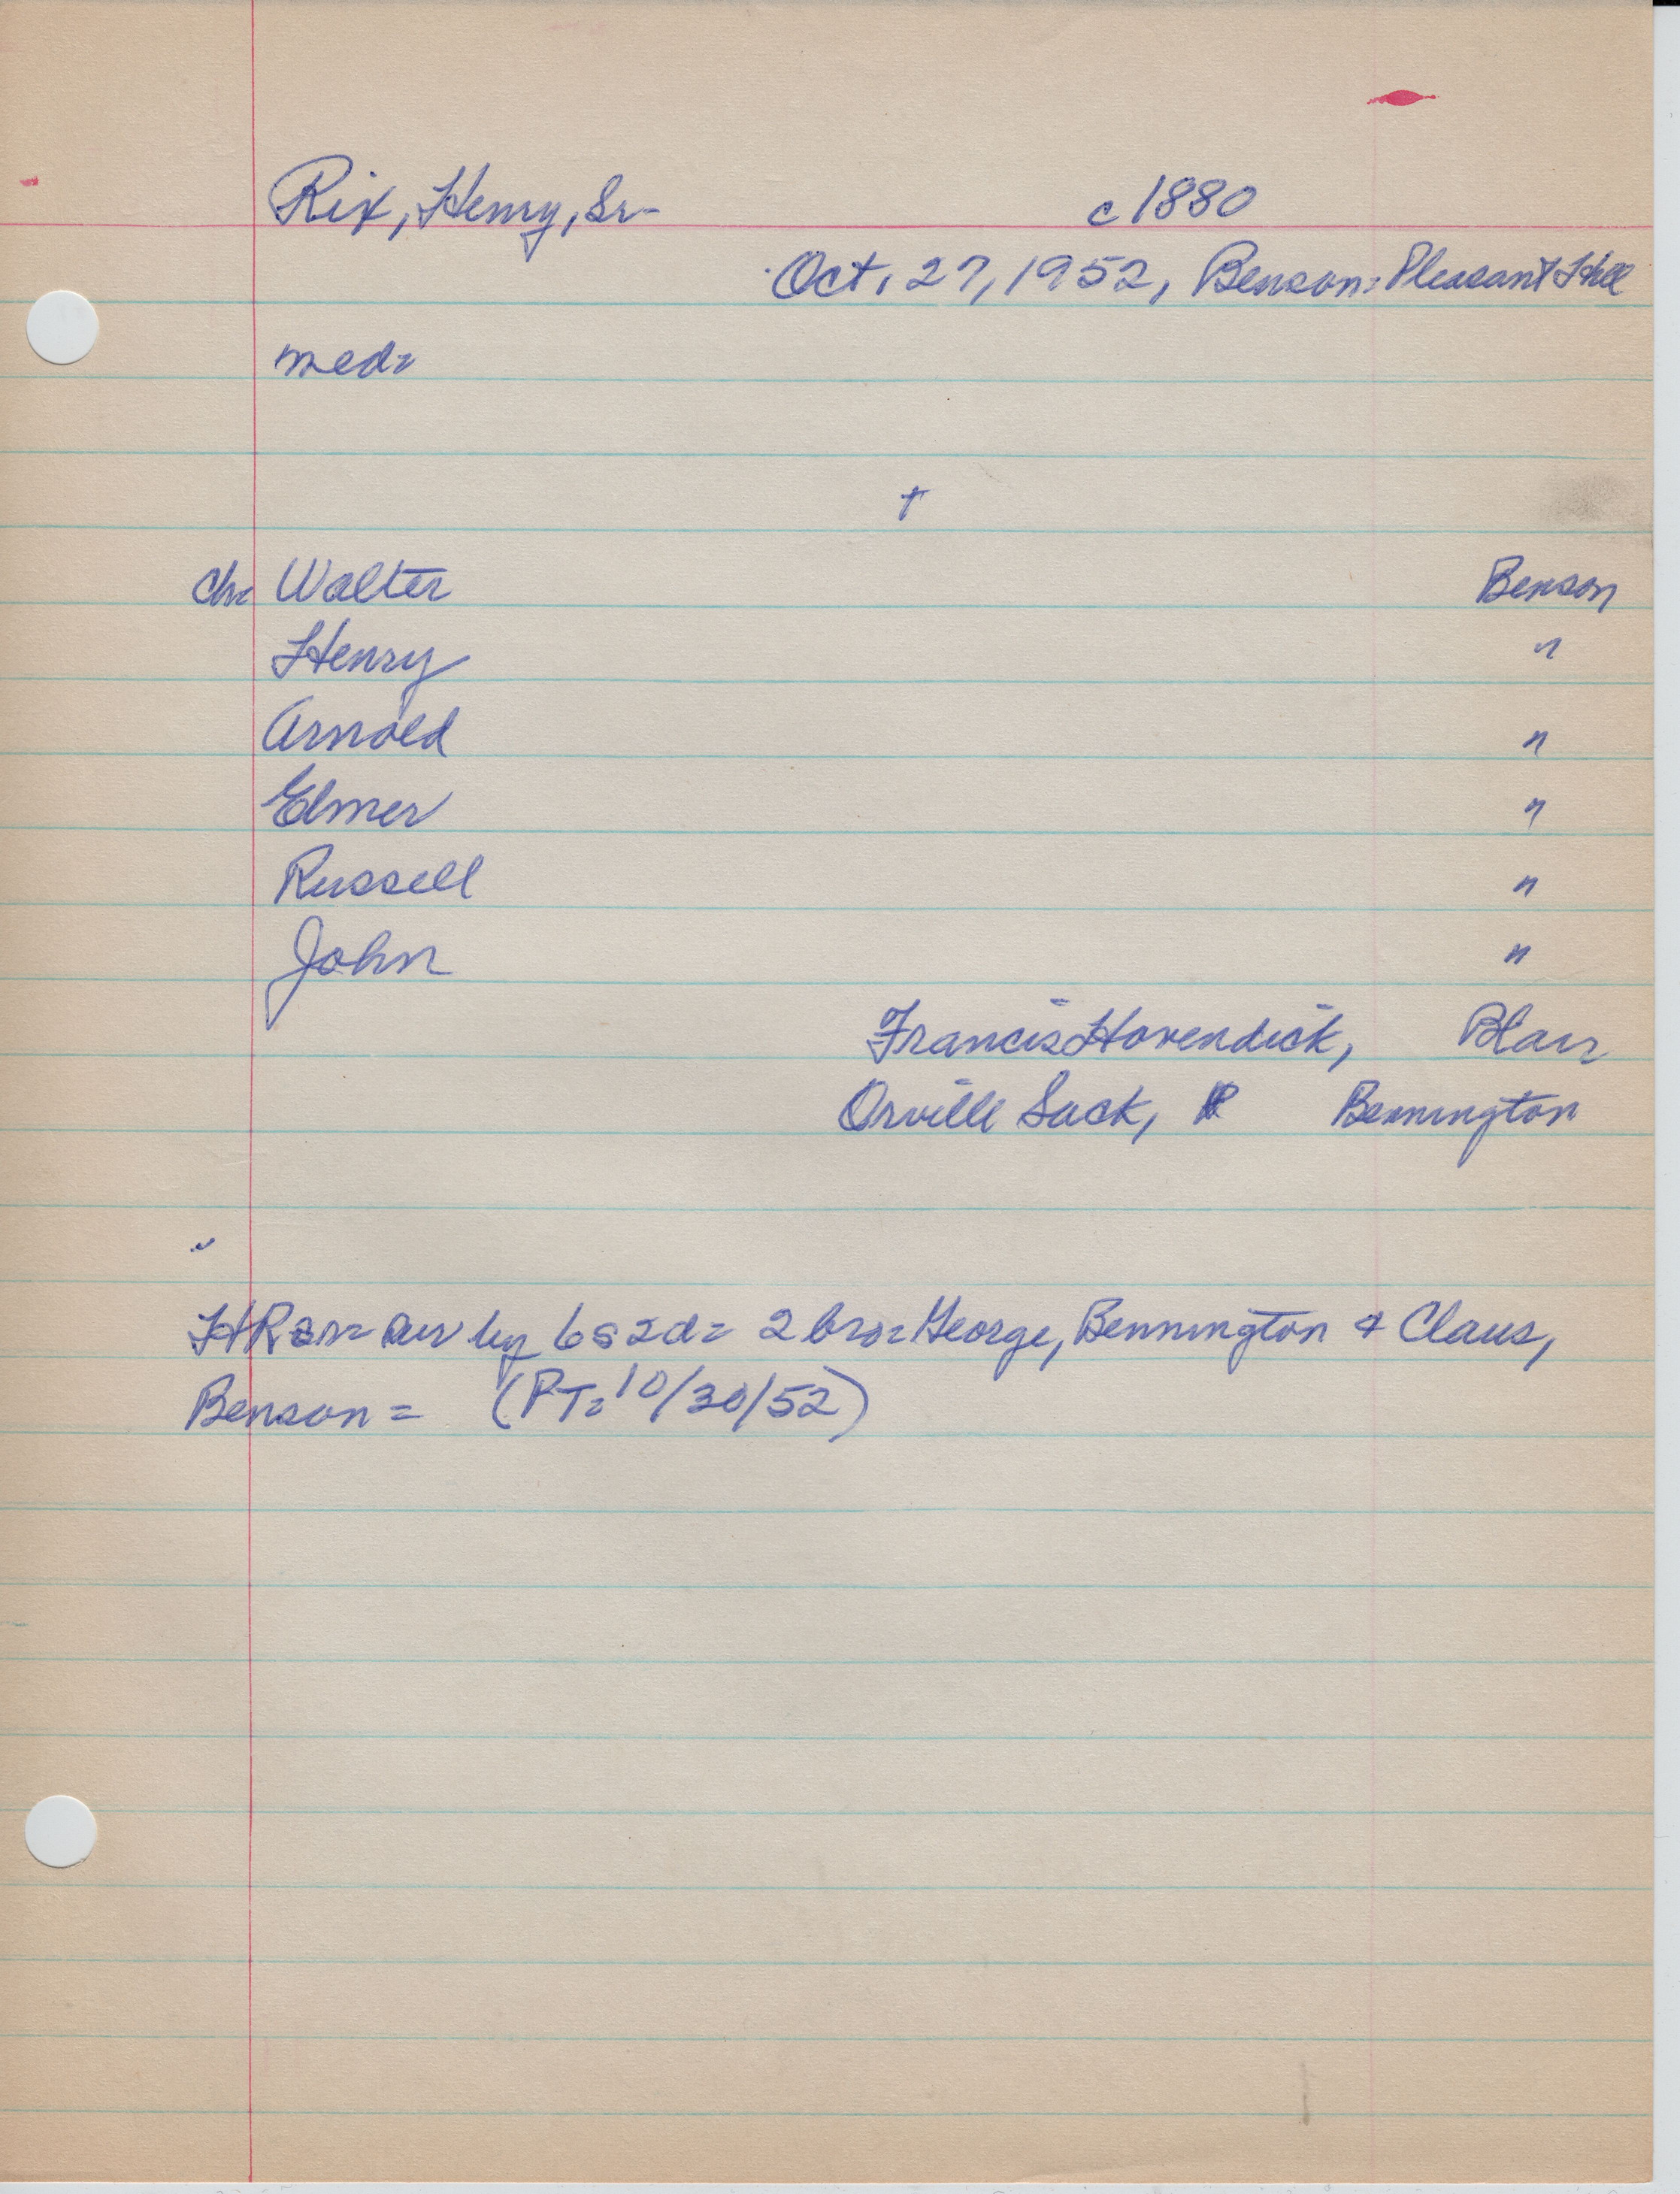 Rix, Henry, Sr- c1880
Oct. 27, 1952, Benson: Pleasant Hill
med=
+
ch= Walter Benson
Henry "
Arnold "
Elmer "
Russell "
John "
Francis Hovendick, Blair
Orville Sack, Bennington
HR sr= sur by 6s 2d= 2 bro= George, Bennington & Claus,
Benson = (PT= 10/30/52)